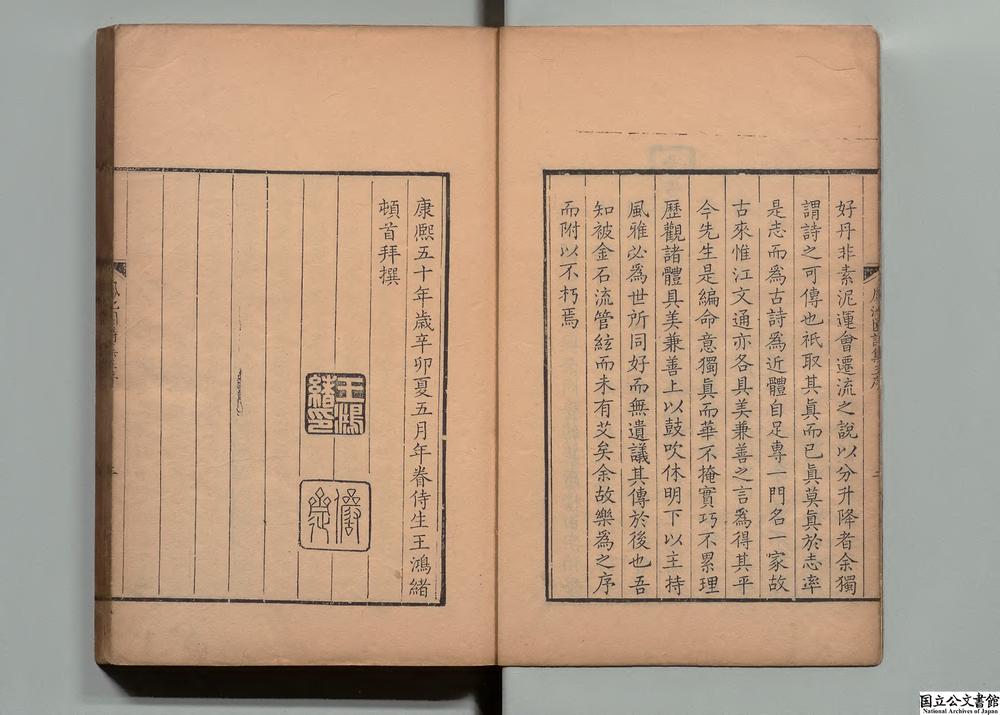 好丹非素泥運會遷流之說以分升降者余獨
謂詩之可傳也祇取其眞而已眞莫眞於志率
是志而爲古詩爲近體自足專一門名一家故
古來惟江文通亦各具美兼善之言爲得其平
今先生是編命意獨眞而華不掩實巧不累理
歷觀諸體具美兼善上以鼓吹休明下以主持
風雅必爲世所同好而無遺議其傳於後也吾
知被金石流管絃而未有艾矣余故樂爲之序
而附以不朽焉
康熙五十年歲辛卯夏五月年眷侍生王鴻緒
頓首拜撰
王鴻
緒印
儼
齋
国立公文書館
National Archives of Japan